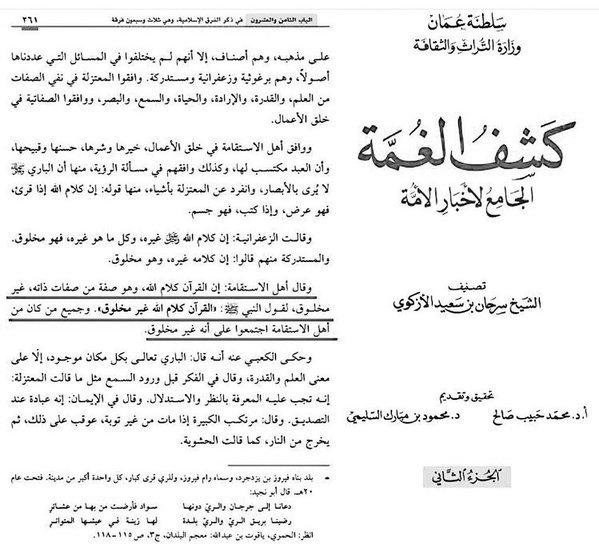 سلطنة عمان
وزارة التراث والثقافة
كشف الغمة
الجامع لأخبار الأمة
تصنيف
الشيخ سرحان بن سعيد الأزكوي
تحقيق وتقديم
أ.د. محمد حبيب صالح
د. محمود بن مبارك السليمي
الجزء الثاني
الباب الثامن والعشرون في ذكر الفرق الإسلامية، وهي ثلاث وسبعون فرقة
٣٦١
على مذهبه، وهم أصناف، إلا أنهم لم يختلفوا في المسائل التي عددناها
أصولاً، وهم برغوثية وزعفرانية ومستدركة. وافقوا المعتزلة في نفي الصفات
من العلم، والقدرة، والإرادة، والحياة، والسمع، والبصر، ووافقوا الصفاتية في
خلق الأعمال.
ووافق أهل الاستقامة في خلق الأعمال، خيرها وشرها، حسنها وقبيحها،
وأن العبد مكتسب لها، وكذلك وافقهم في مسألة الرؤية، منها أن الباري ﷻ
لا يُرى بالأبصار، وانفرد عن المعتزلة بأشياء، منها قوله: إن كلام الله إذا قرئ،
فهو عرض، وإذا كتب، فهو جسم.
وقالت الزعفرانية: إن كلام الله ﷻ غيره، وكل ما هو غيره، فهو مخلوق.
والمستدركة منهم قالوا: إن كلامه غيره، وهو مخلوق.
وقال أهل الاستقامة: إن القرآن كلام الله، وهو صفة من صفات ذاته، غير
مخلوق، لقول النبي ﷺ: «القرآن كلام الله غير مخلوق». وجميع من كان من
أهل الاستقامة اجتمعوا على أنه غير مخلوق.
وحكى الكعبي عنه أنه قال: الباري تعالى بكل مكان موجود، إلّا على
معنى العلم والقدرة، وقال في الفكر قبل ورود السمع مثل ما قالت المعتزلة:
إنه تجب عليه المعرفة بالنظر والاستدلال. وقال في الإيمان: إنه عبادة عند
التصديق. وقال: مرتكب الكبيرة إذا مات من غير توبة، عوقب على ذلك، ثم
يخرج من النار، كما قالت الحشوية.
= بلد بناه فيروز بن يزدجرد، وسماه رام فيروز، وللري قرى كبار، كل واحدة أكبر من مدينة. فتحت عام
٢٠هـ، قال أبو نجيد:
دعانا إلى جرجان والريّ دونها سواد فأرضت من بها من عشائر
رضينا بريق الريّ والريّ بلدة لها زينة في عيشها المتواتر
انظر: الحموي، ياقوت بن عبدالله: معجم البلدان، ج٣، ص ١١٥ - ١١٨.